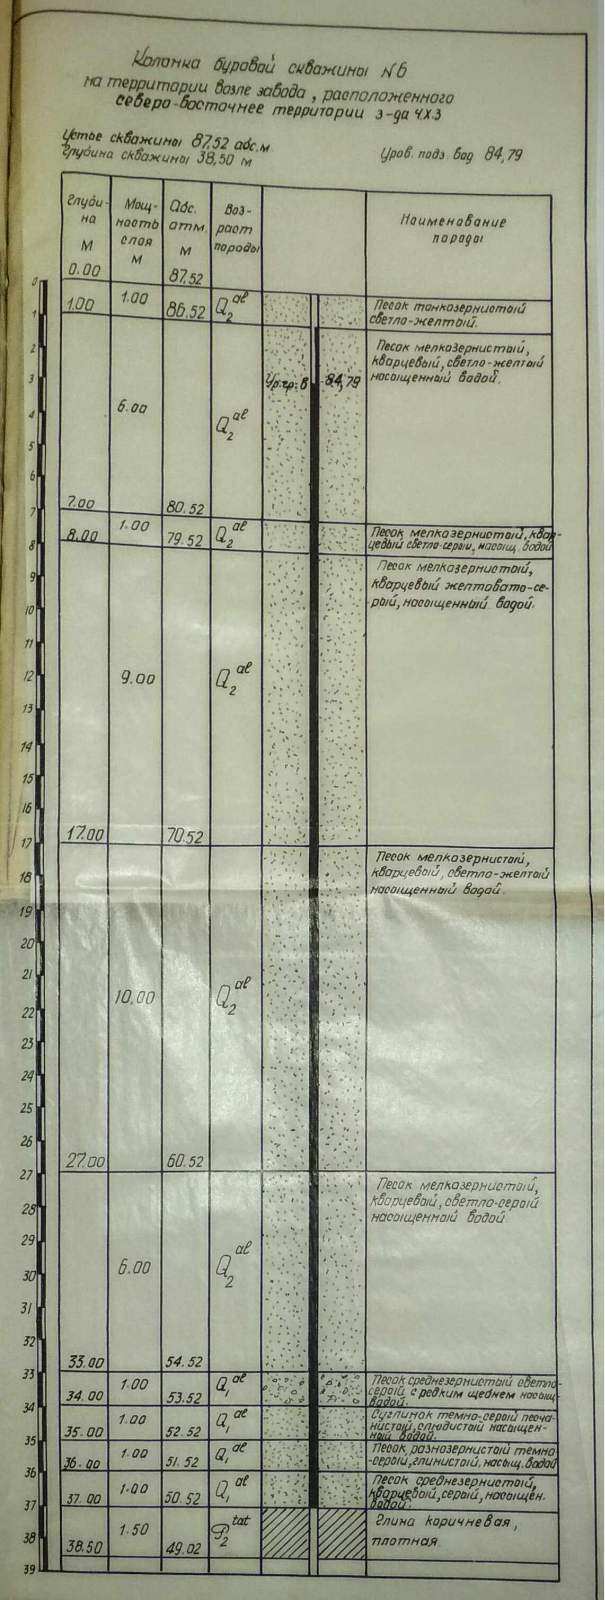 Колонка буровой скважины №6
на территории возле завода, расположенного
северо-восточнее территории з-да ЧХЗ
Устье скважины 87.52 абс.м
Глубина скважины 38,50 м
Уров. подз. вод 84,79
Глуби-
на
м
Мощ-
ность
слоя
м
Абс.
отм.
м
Воз-
раст
породы
Наименование
породы
0.00 87.52
1.00 1.00 86.52 Q₂ᵃˡ
Песок тонкозернистый
светло-желтый.
Песок мелкозернистый,
кварцевый, светло-желтый
насыщенный водой.
Ур.гр.в 84,79
6.00 Q₂ᵃˡ
7.00 80.52
8.00 1.00 79.52 Q₂ᵃˡ
Песок мелкозернистый, квар-
цевый светло-серый, насыщ. водой
Песок мелкозернистый,
кварцевый желтовато-се-
рый, насыщенный водой.
9.00 Q₂ᵃˡ
17.00 70.52
Песок мелкозернистый,
кварцевый, светло-желтый
насыщенный водой.
10.00 Q₂ᵃˡ
27.00 60.52
Песок мелкозернистый,
кварцевый, светло-серый
насыщенный водой.
6.00 Q₂ᵃˡ
33.00 54.52
34.00 1.00 53.52 Q₁ᵃˡ
Песок среднезернистый светло-
серый с редким щебнем насыщ.
водой.
35.00 1.00 52.52 Q₁ᵃˡ
Суглинок темно-серый песча-
нистый, слюдистый насыщен-
ный водой.
36.00 1.00 51.52 Q₁ᵃˡ
Песок, разнозернистый темно-
-серый, глинистый, насыщ. водой
37.00 1.00 50.52 Q₁ᵃˡ
Песок среднезернистый,
кварцевый, серый, насыщен.
водой.
38.50 1.50 49.02 P₂ᵗᵃᵗ
Глина коричневая,
плотная.
0
1
2
3
4
5
6
7
8
9
10
11
12
13
14
15
16
17
18
19
20
21
22
23
24
25
26
27
28
29
30
31
32
33
34
35
36
37
38
39